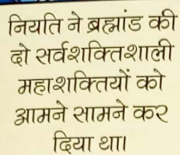 नियति ने ब्रह्मांड की
दो सर्वशक्तिशाली
महाशक्तियों को
आमने सामने कर
दिया था।